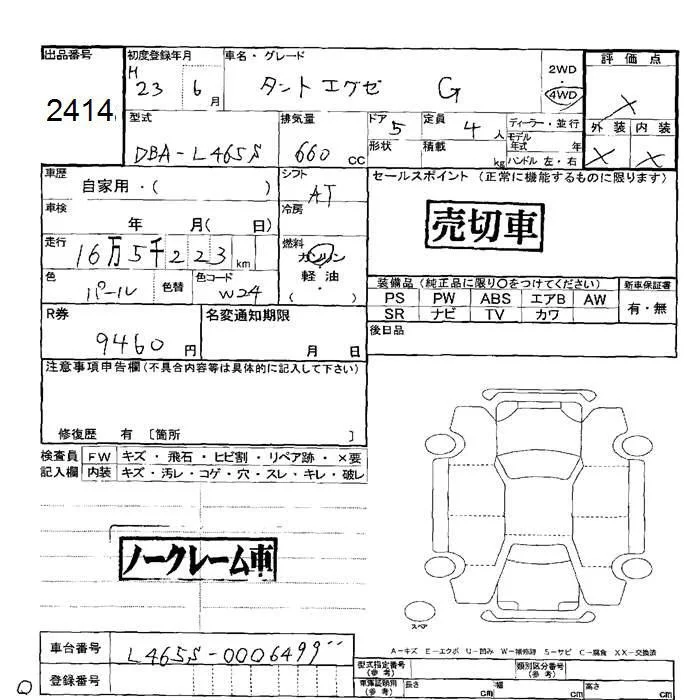 出品番号 初度登録年月 車名・グレード 評価点
2414 H 23 6月 タントエグゼ G 2WD 4WD ×
型式 排気量 ドア 5 定員 4人 ディーラー・並行 外装 内装
DBA-L465S 660 CC 形状 積載 kg モデル年式 年 ハンドル 左・右 × ×
車歴 自家用・( ) シフト AT セールスポイント (正常に機能するものに限ります)
車検 年 月( 日) 冷房 売切車
走行 16万5千223km 燃料 ガソリン
色 パール 色替 色コード W24 軽油・( )
装備品(純正品に限り○をつけてください) 新車保証書
PS PW ABS エアB AW 有・無
SR ナビ TV カワ
R券 9460円 名変通知期限 月 日 後日品
注意事項申告欄(不具合内容等は具体的に記入して下さい)
修復歴 有 〔箇所 〕
検査員 FW キズ・飛石・ヒビ割・リペア跡・×要
記入欄 内装 キズ・汚レ・コゲ・穴・スレ・キレ・破レ
ノークレーム車
スペア
A-キズ E-エクボ U-凹み W-補修跡 S-サビ C-腐食 XX-交換済
車台番号 L465S-0006499 型式指定番号(参考) 類別区分番号(参考)
登録番号 車庫証明用(参考) 長さ cm 幅 cm 高さ cm